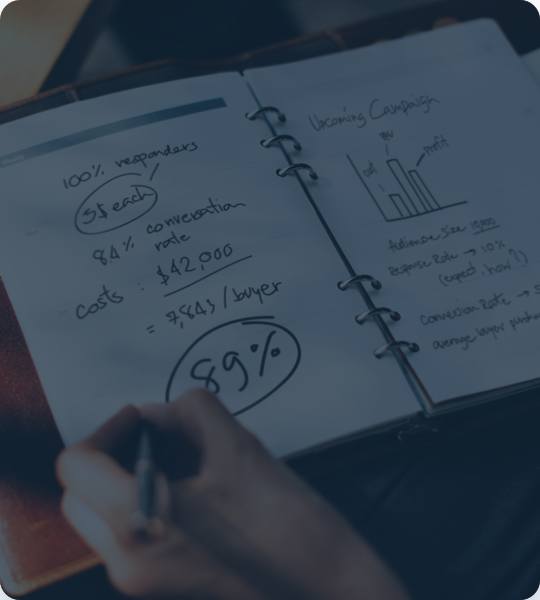 100% responders
5$ each
84% conversation
rate
costs : $42,000
= 7,843 / buyer
89%
Upcoming Campaign
profit
Audience Size 10,000
Response Rate → 10%
(expect, how?)
Conversion Rate →
average buyer